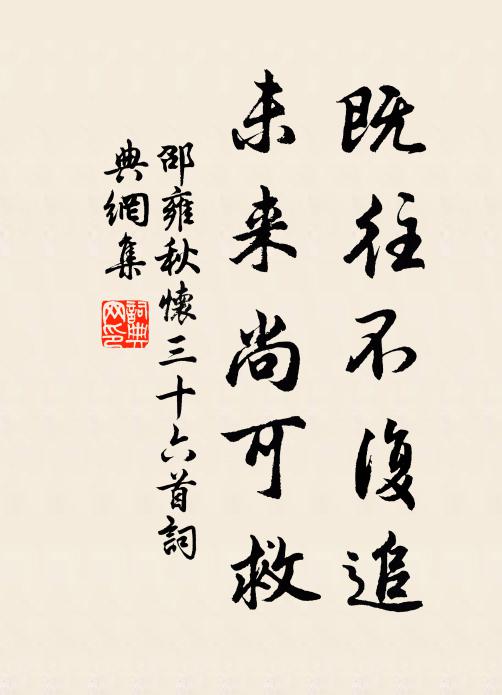 既往不復追
未来尚可救
邵雍秋懷三十六首詞
典網集
詞典網印